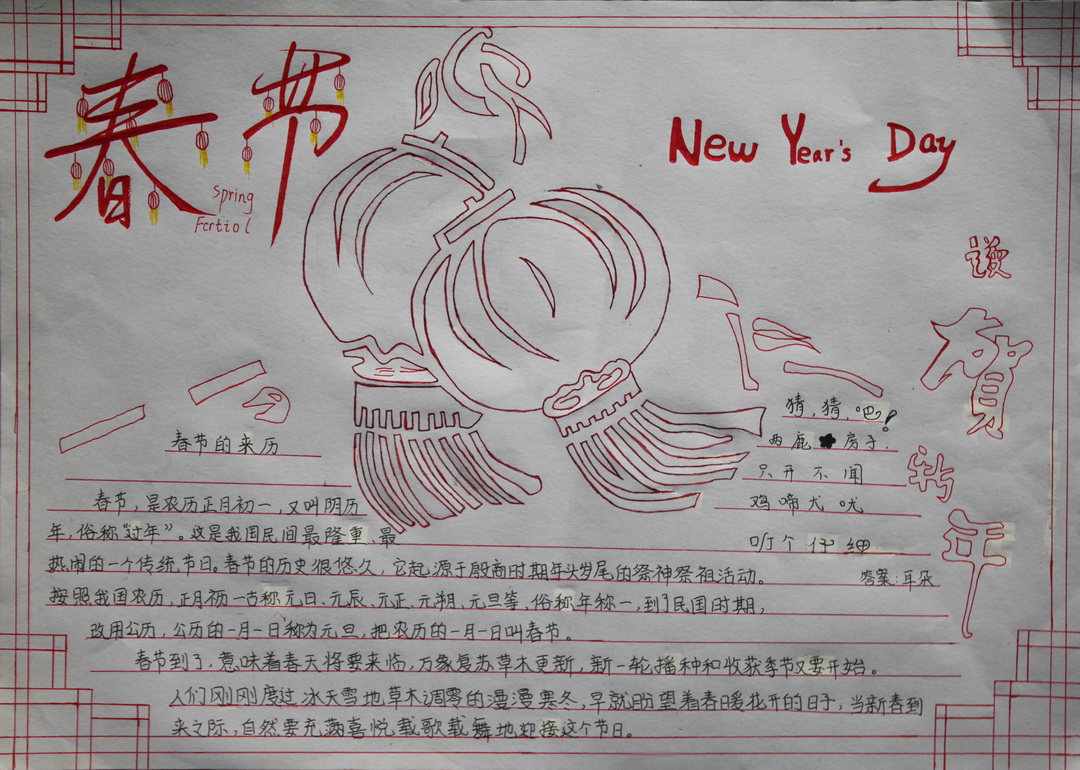 春节
Spring
Fcrtiol
New Year's Day
谨
贺
新
年
春节的来历
春节，是农历正月初一，又叫阴历
年，俗称“过年”。这是我国民间最隆重、最
热闹的一个传统节日。春节的历史很悠久，它起源于殷商时期年头岁尾的祭神祭祖活动。
按照我国农历，正月初一古称元日、元辰、元正、元朔、元旦等，俗称年称一，到了民国时期，
改用公历，公历的一月一日称为元旦，把农历的一月一日叫春节。
春节到了，意味着春天将要来临，万象复苏草木更新，新一轮播种和收获季节又要开始。
人们刚刚度过冰天雪地草木凋零的漫漫寒冬，早就盼望着春暖花开的日子，当新春到
来之际，自然要充满喜悦载歌载舞地迎接这个节日。
猜，猜，吧！
两扇 房子．
只开不闻
鸡啼犬吠
听个仔细
答案：耳朵